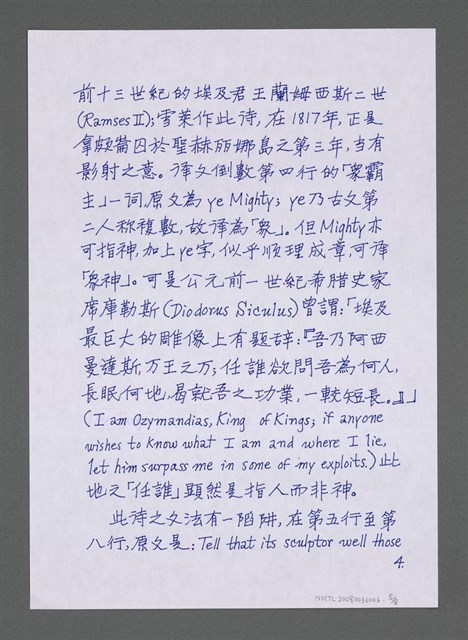 前十三世紀的埃及君王蘭姆西斯二世
(Ramses II);雪萊作此詩,在1817年,正是
拿頗崙囚於聖赫麗娜島之第三年,当有
影射之意。譯文倒數第四行的「眾霸
主」一詞,原文為ye Mighty; ye乃古文第
二人称複數,故译為「眾」。但Mighty亦
可指神,加上ye字,似乎順理成章,可译
「眾神」。可是公元前一世紀希腊史家
席庫勒斯(Diodorus Siculus)曾謂:「埃及
最巨大的雕像上有题辞:『吾乃阿西
曼達斯,万王之万;任誰欲問吾為何人,
長眠何地,曷就吾之功業,一較短長。』」
(I am Ozymandias, King of Kings; if anyone
wishes to know what I am and where I lie,
let him surpass me in some of my exploits.)此
地之「任誰」顯然是指人而非神。
此诗之文法有一陷阱,在第五行至第
八行,原文是: Tell that its sculptor well those
4.
NMTL20080036003.5/6